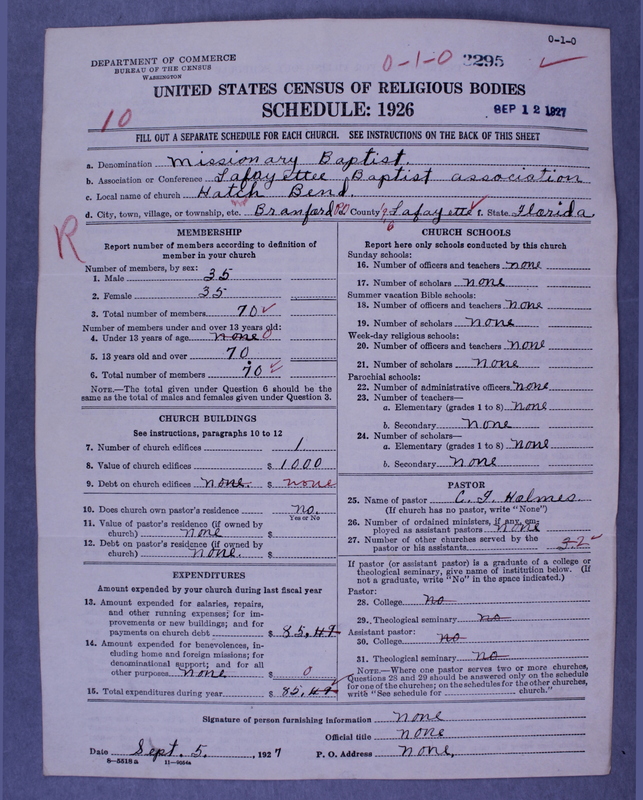 0-1-0
DEPARTMENT OF COMMERCE
BUREAU OF THE CENSUS
WASHINGTON
0-1-0 3295
UNITED STATES CENSUS OF RELIGIOUS BODIES
SCHEDULE: 1926
SEP 12 1927
10
FILL OUT A SEPARATE SCHEDULE FOR EACH CHURCH. SEE INSTRUCTIONS ON THE BACK OF THIS SHEET
a. Denomination Missionary Baptist.
b. Association or Conference Lafayettee Baptist association
c. Local name of church Hatch Bend.
d. City, town, village, or township, etc. Branford County Lafayette f. State Florida
R
MEMBERSHIP
Report number of members according to definition of member in your church
Number of members, by sex:
1. Male 35
2. Female 35
3. Total number of members 70
Number of members under and over 13 years old:
4. Under 13 years of age none 0
5. 13 years old and over 70
6. Total number of members 70
NOTE.—The total given under Question 6 should be the same as the total of males and females given under Question 3.
CHURCH BUILDINGS
See instructions, paragraphs 10 to 12
7. Number of church edifices 1
8. Value of church edifices $ 1000
9. Debt on church edifices none. $ none
10. Does church own pastor's residence no.
Yes or No
11. Value of pastor's residence (if owned by church) none $
12. Debt on pastor's residence (if owned by church) none. $
EXPENDITURES
Amount expended by your church during last fiscal year
13. Amount expended for salaries, repairs, and other running expenses; for improvements or new buildings; and for payments on church debt $ 85,49
14. Amount expended for benevolences, including home and foreign missions; for denominational support; and for all other purposes none $ 0
15. Total expenditures during year $ 85,49
CHURCH SCHOOLS
Report here only schools conducted by this church
Sunday schools:
16. Number of officers and teachers none
17. Number of scholars none
Summer vacation Bible schools:
18. Number of officers and teachers none
19. Number of scholars none
Week-day religious schools:
20. Number of officers and teachers none
21. Number of scholars none
Parochial schools:
22. Number of administrative officers none
23. Number of teachers—
a. Elementary (grades 1 to 8) none
b. Secondary none
24. Number of scholars—
a. Elementary (grades 1 to 8) none
b. Secondary none
PASTOR
25. Name of pastor C. T. Holmes.
(If church has no pastor, write "None")
26. Number of ordained ministers, if any, employed as assistant pastors none
27. Number of other churches served by the pastor or his assistants
If pastor (or assistant pastor) is a graduate of a college or theological seminary, give name of institution below. (If not a graduate, write "No" in the space indicated.)
Pastor:
28. College no
29. Theological seminary no
Assistant pastor:
30. College no
31. Theological seminary no
NOTE.—Where one pastor serves two or more churches, Questions 28 and 29 should be answered only on the schedule for one of the churches; on the schedules for the other churches, write "See schedule for church."
Signature of person furnishing information none
Official title none
Date Sept. 5. , 1927 P. O. Address none,
8-5518a 11-9054a